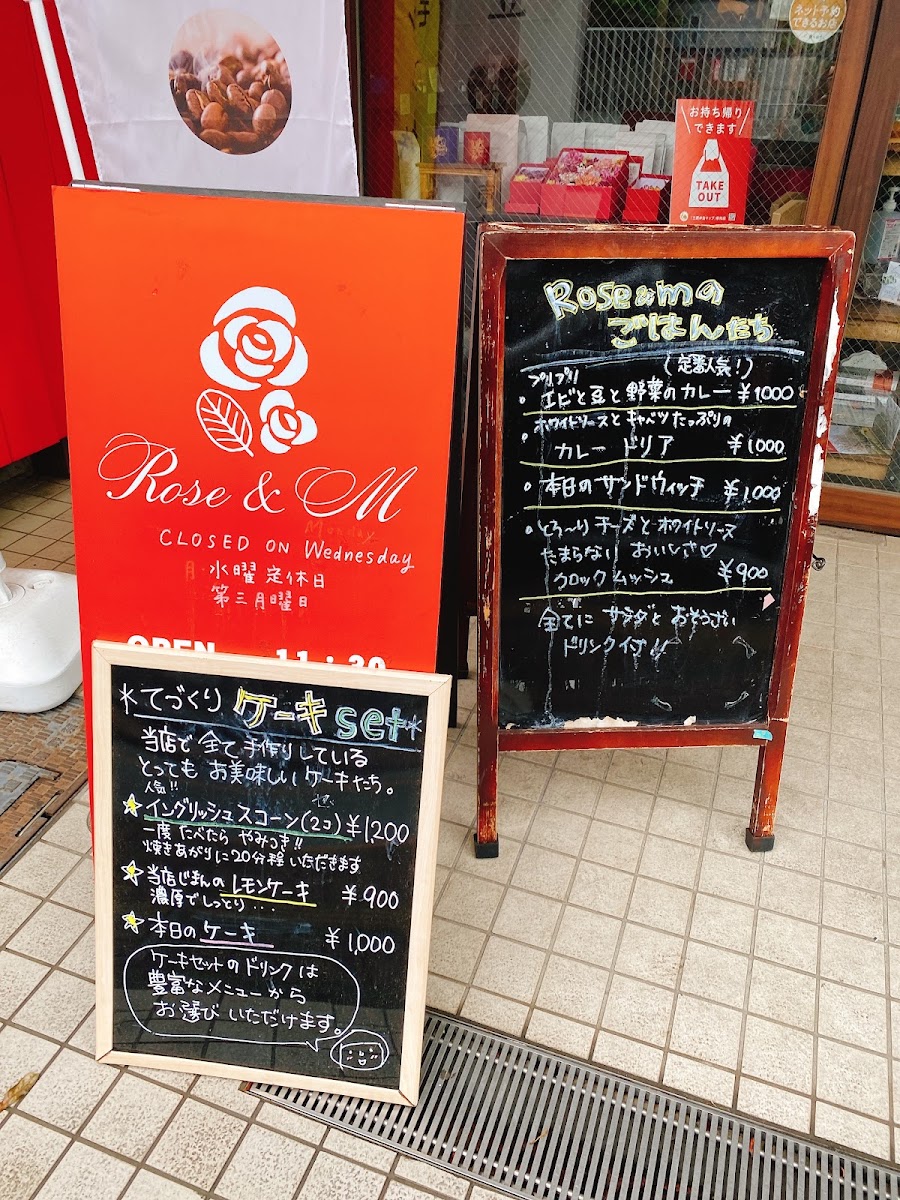 ネット予約
できるお店
お持ち帰り
できます
TAKE
OUT
Rose & M
Monday
CLOSED ON Wednesday
月 水曜定休日
第三月曜日
OPEN 11:30
Rose&mの
ごはんたち
(定番人気!)
プリプリ
エビと豆と野菜のカレー ¥1000
ホワイトソースとキャベツたっぷりの
カレードリア ¥1000
本日のサンドウィッチ ¥1,000
とろ〜りチーズとホワイトソース
たまらなり おいしさ♡
クロックムッシュ ¥900
全てにサラダとおそうざい
ドリンク付!!
*てづくり ケーキset*
当店で全て手作りしている
とってもお美味しいケーキたち。
人気!!
イングリッシュスコーン(2コ) ¥1,200
一度たべたらやみつき!!
焼きあがりに20分程いただきます
当店じまんのレモンケーキ ¥900
濃厚でしっとり...
本日のケーキ ¥1,000
ケーキセットのドリンクは
豊富なメニューから
お選びいただけます。